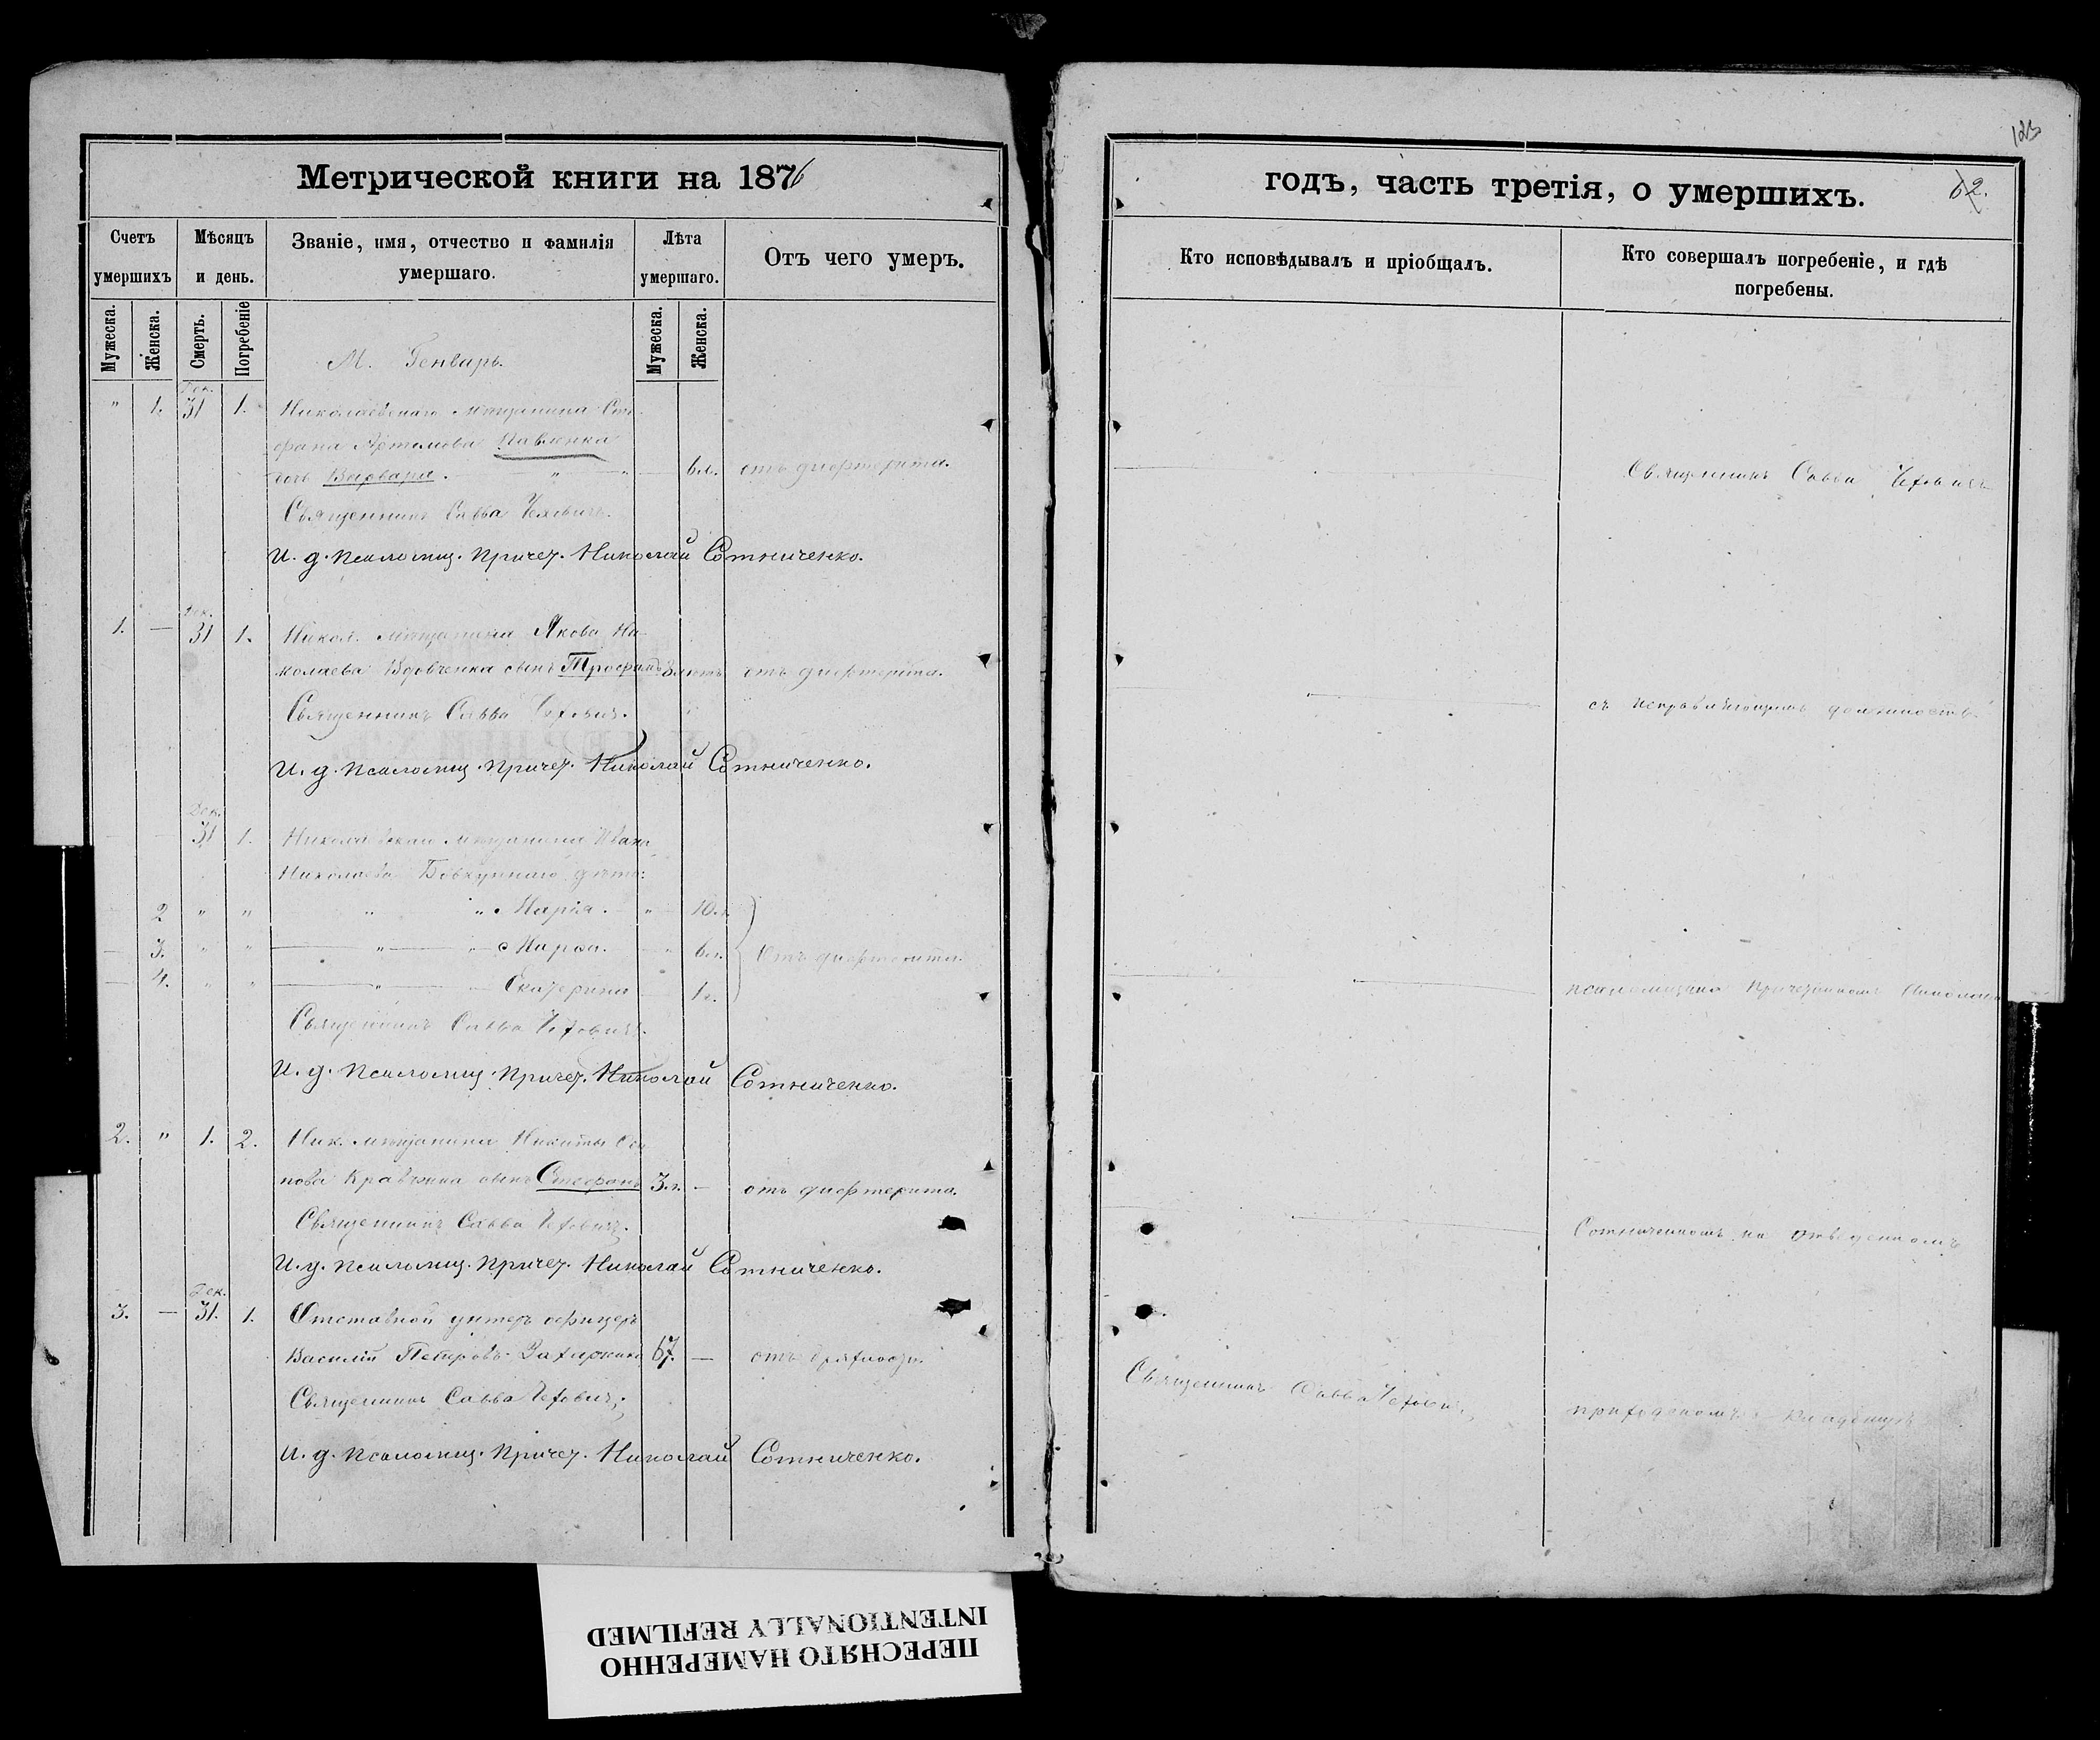 Метрической книги на 1876
Счетъ умершихъ
Мѣсяцъ и день.
Званіе, имя, отчество и фамилія умершаго.
Лѣта умершаго.
Отъ чего умеръ.
Мужеска.
Женска.
Смерть.
Погребеніе
Мужеска.
Женска.
М. Генварь.
Дек.
" 1. 31 1. Николаевскаго мѣщанина Сте-
фана Артемова Павленка
дочь Варвара. " " 6 л. отъ дифтерита.
Священникъ Савва Чехович.
И. д. псаломщ. Причет. Николай Сотниченко.
Дек.
1. — 31 1. Никол. мѣщанина Якова Ни-
колаева Вдовченка сынъ Трофимъ 3 лѣтъ отъ дифтерита.
Священникъ Савва Чехович.
И. д. псаломщ. Причет. Николай Сотниченко.
Дек.
31 1. Николаевскаго мѣщанина Ивана
Николаева дѣти:
2 " " " " Марія. " 10 л.
3. " " " " Марѳа. " 6 л. Отъ дифтерита.
4. " " " Екатерина 1 г.
Священникъ Савва Чехович.
И. д. псаломщ. Причет. Николай Сотниченко.
2. " 1. 2. Ник. мѣщанина Никиты Оси
пова Кравченка сынъ Стефанъ 3 л. — отъ дифтерита.
Священникъ Савва Чехович.
И. д. псаломщ. Причет. Николай Сотниченко.
Дек.
3. — 31. 1. Отставной унтеръ офицеръ
Василій Петровъ 67. — отъ
Священникъ Савва Чехович.
И. д. псаломщ. Причет. Николай Сотниченко.
123
годъ, часть третія, о умершихъ.
62.
Кто исповѣдывалъ и пріобщалъ.
Кто совершалъ погребеніе, и гдѣ погребены.
Священникъ Савва Чехович
съ исправляющимъ должность
псаломщика Причетникомъ Николаемъ
Сотниченкомъ на отведенномъ
Священникъ Савва Чехович.
приходскомъ кладбищѣ
ПЕРЕСНЯТО НАМЕРЕННО
INTENTIONALLY REFILMED